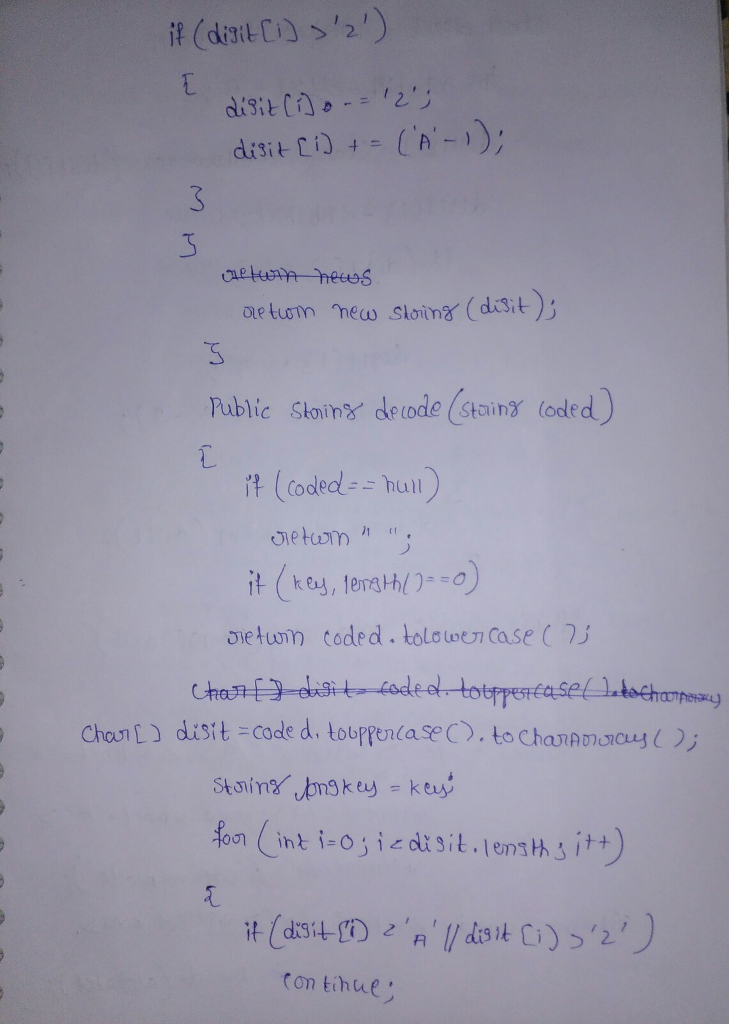 if (digit[i] > 'z')
{
digit[i] -= 'z';
digit[i] += ('A' - 1);
}
}
return news
return new string (digit);
}
Public String decode (string coded)
{
if (coded == null)
return " ";
if (key, length() == 0)
return coded. toLowercase ();
Char[] digit = coded. touppercase(). toCharArray
Char[] digit = coded. touppercase(). toCharArray();
String longkey = key;
for (int i=0; i < digit. length; i++)
{
if (digit[i] < 'A' || digit[i] > 'z')
continue;